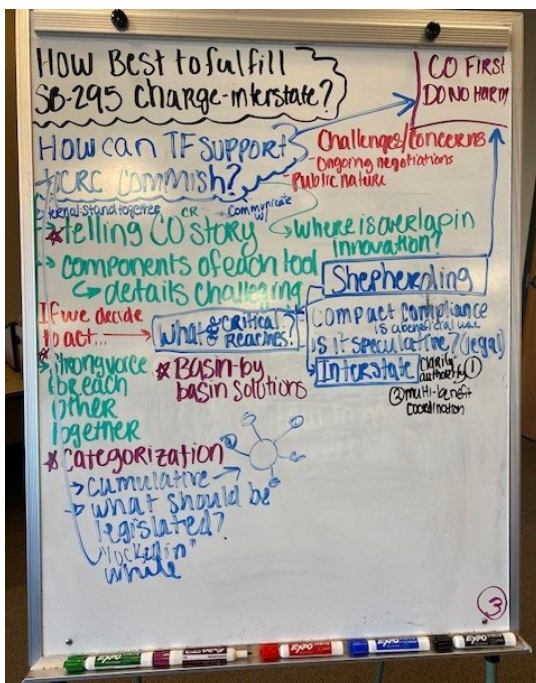 How Best to fulfill
SB-295 Charge-interstate?
CO FIRST
DO NO HARM
How can TF SUPPORT
UCRC COMMISH?
Challenges/Concerns
- Ongoing negotiations
- Public nature
external-stand together
CR
Communicate
w/
telling CO STORY
Where is overlap in
innovation?
components of each tool
details challenging
Shepherding
If we decide
to act...
What & Critical
Reaches?
Compact compliance
is a beneficial use
is it speculative? (legal)
Interstate
clarity
authority
1
2 multi-benefit
coordination
strong voice
each
other
together
Basin-by
basin solutions
Categorization
cumulative
what should be
legislated?
"locked in"
while
3
EXPO
EXPO
EXPO
EXPO